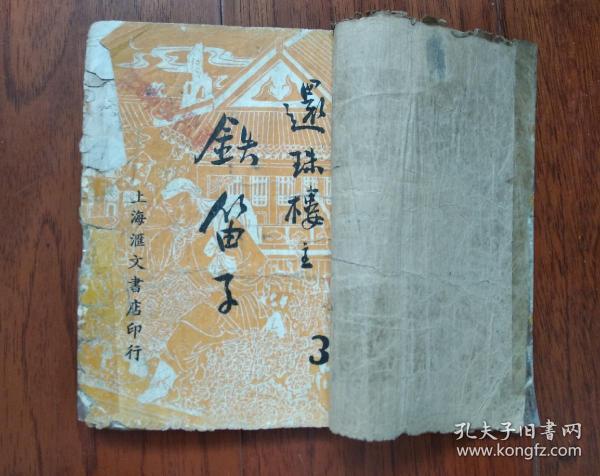 還珠樓主
鉄笛子
3
上海滙文書店印行
孔夫子旧書网
www.kongfz.com